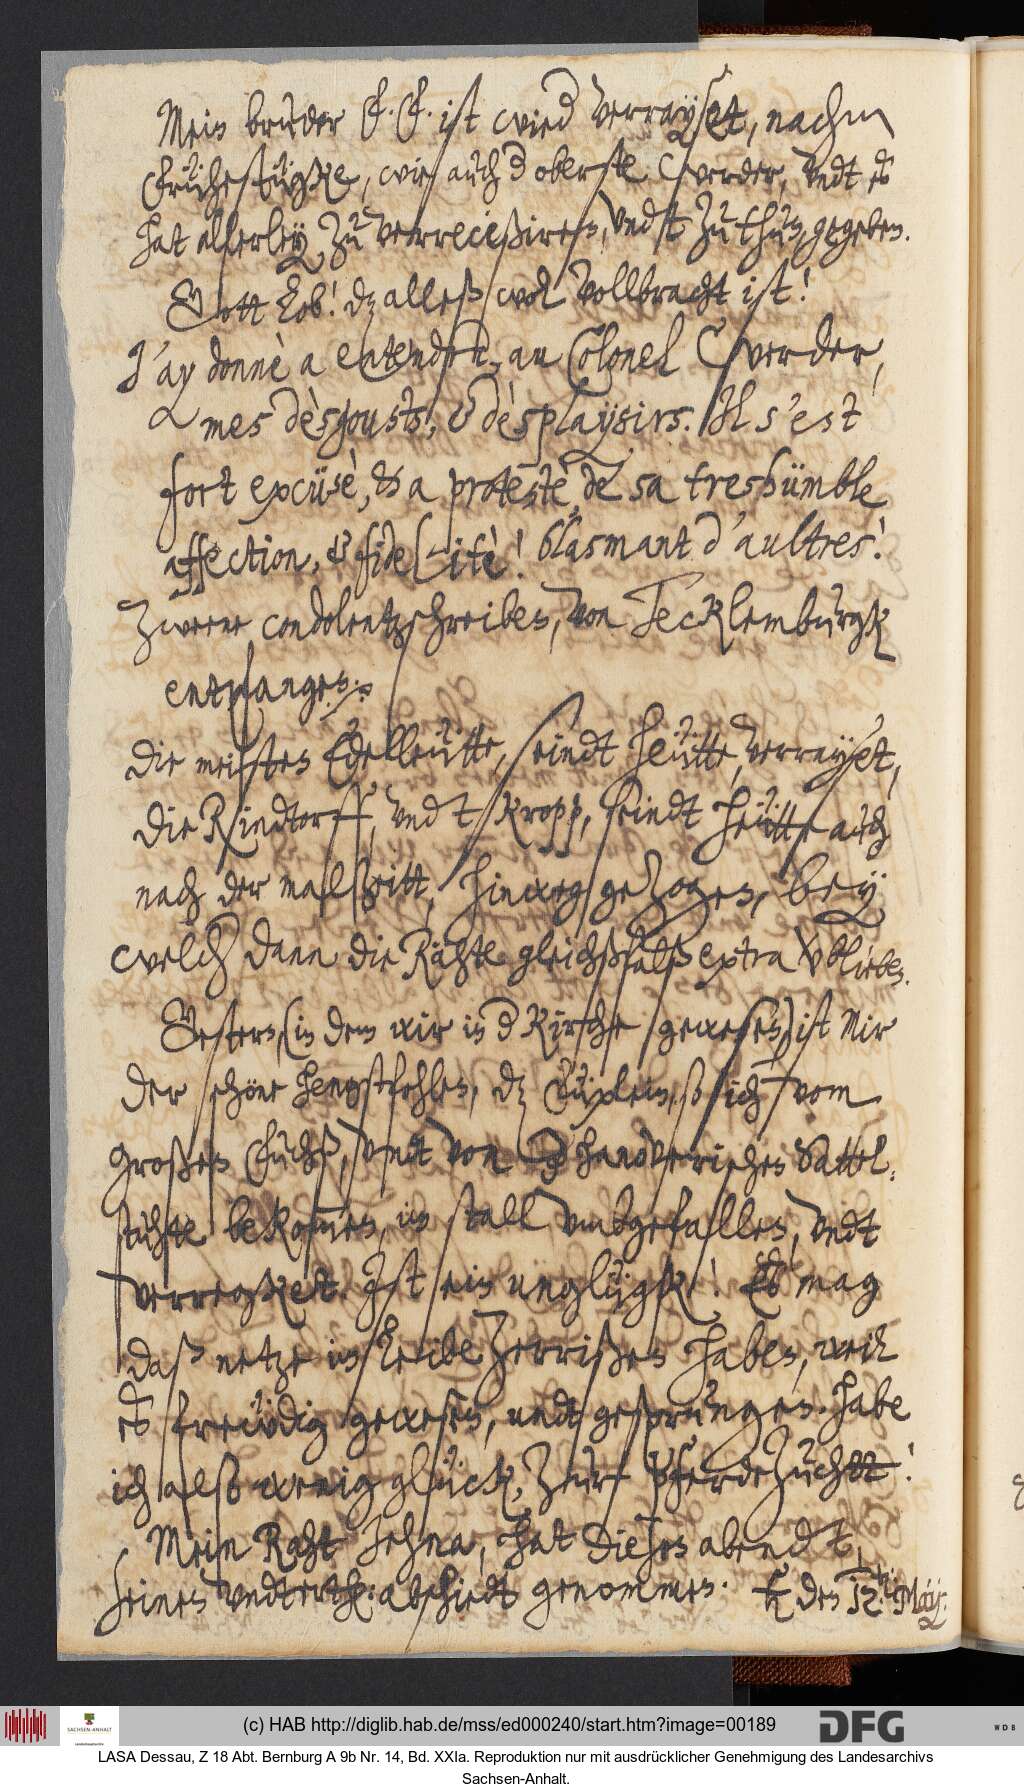 Mein bruder F. F. ist wied verrayset, nachm
frühestügke, wie auch d oberste Werder, undt es
hat allerley zu verrecessiren, undt zu thun gegeben.
Gott Lob! dz alleß wol vollbracht ist!
J'ay donnè a entendre, au Colonel Werder,
mes dèsgousts, & dèsplaysirs. Il s'est
fort excüsè, & a protestè de sa treshümble
affection, & fidelitè! blasmant d'aultres!
Zweene condolentzschreiben, von Tecklemburgk
entpfangen.
Die meisten Edelleütte, seindt heütte, verrayset,
die Rindtorff, undt Kropp, seindt heütte auch
nach der malzeitt, hinweg gezogen, bey
welch dann die Rähte gleichßfalß extra blieben.
Gestern, (in dem wir in d Kirche gewesen) ist mir
der schöne hengstfohlen, dz Füxlein, so ich vom
großen Fuchß, undt von d hanöverischen Sattel-
stuhte bekommen, im stall umbgefallen, undt
verregket. Ist ein unglügk! Es mag
daß netze im Leibe zerrißen haben, weil
es freüdig gewesen, undt gesprungen. habe
ich alß wenig glück, zur Pferdezucht!
Mein Raht Jehna, hat dieses abendt,
seinen undterth: abschiedt genommen. den 12. May.
(c) HAB http://diglib.hab.de/mss/ed000240/start.htm?image=00189
DFG
WDB
SACHSEN-ANHALT
LASA Dessau, Z 18 Abt. Bernburg A 9b Nr. 14, Bd. XXIa. Reproduktion nur mit ausdrücklicher Genehmigung des Landesarchivs
Sachsen-Anhalt.